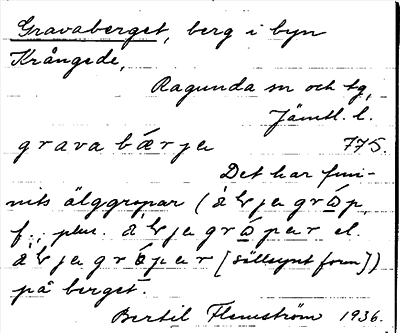 Gravaberget, berg i byn
Krångede,
Ragunda sn och tg,
Jämtl. l.
grava bærja 775.
Det har fun-
nits älggropar (álvjagrɷ́p,
f., plur. álvjagrɷ́par el.
álvjagrǻpar [sällsynt form])
på berget.
Bertil Flemström 1936.